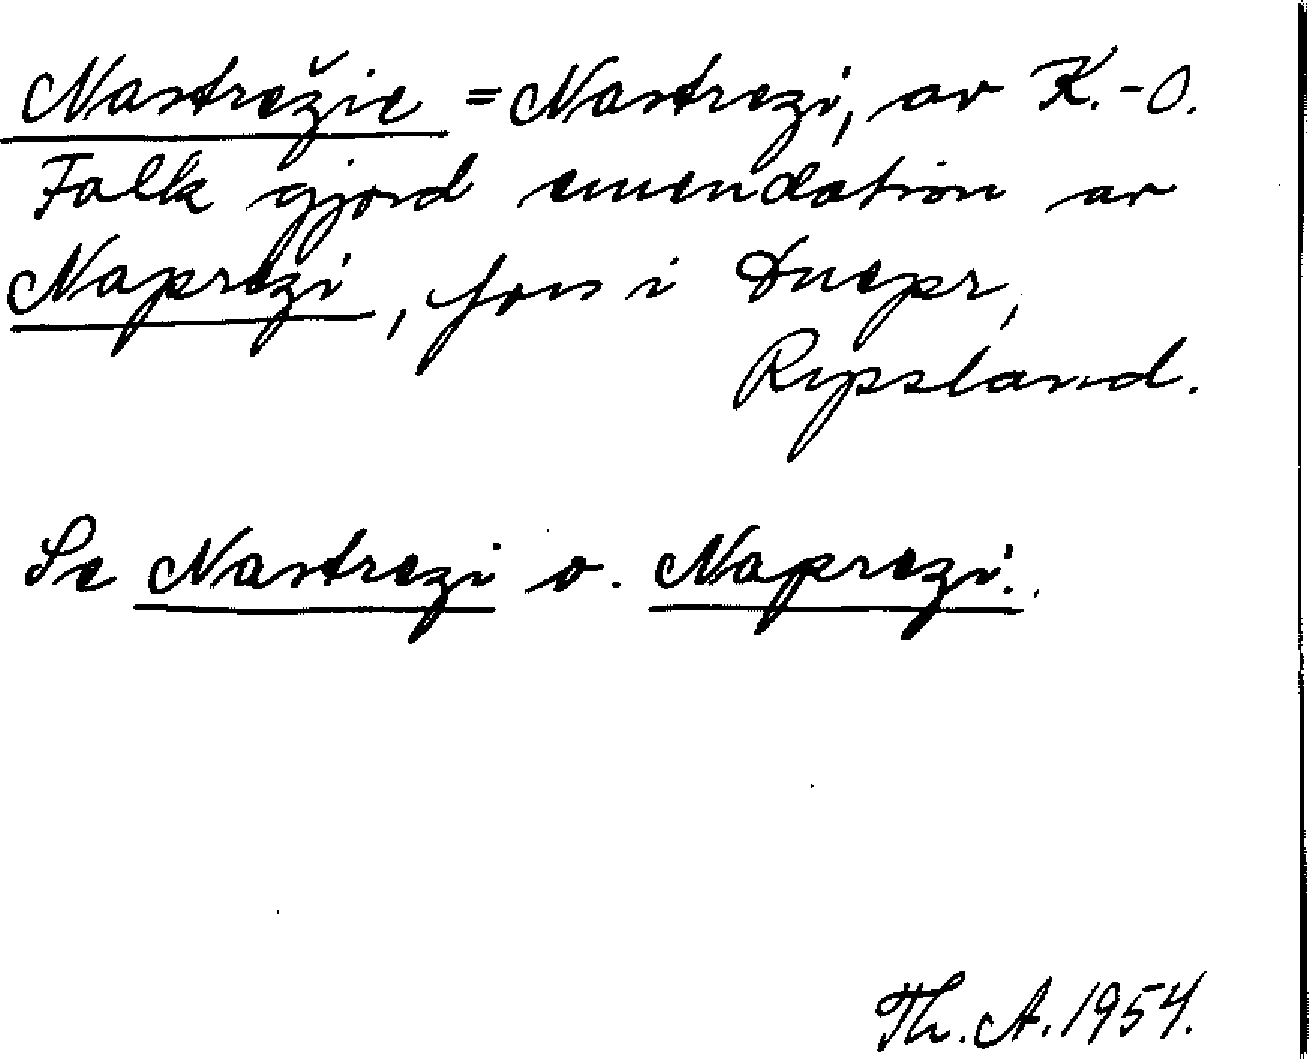 Nastrežie = Nastrezi, av K.-O.
Falk gjord emendation av
Naprezi, fors i Dnepr,
Ryssland.
Se Nastrezi o. Naprezi.
Th. A. 1954.